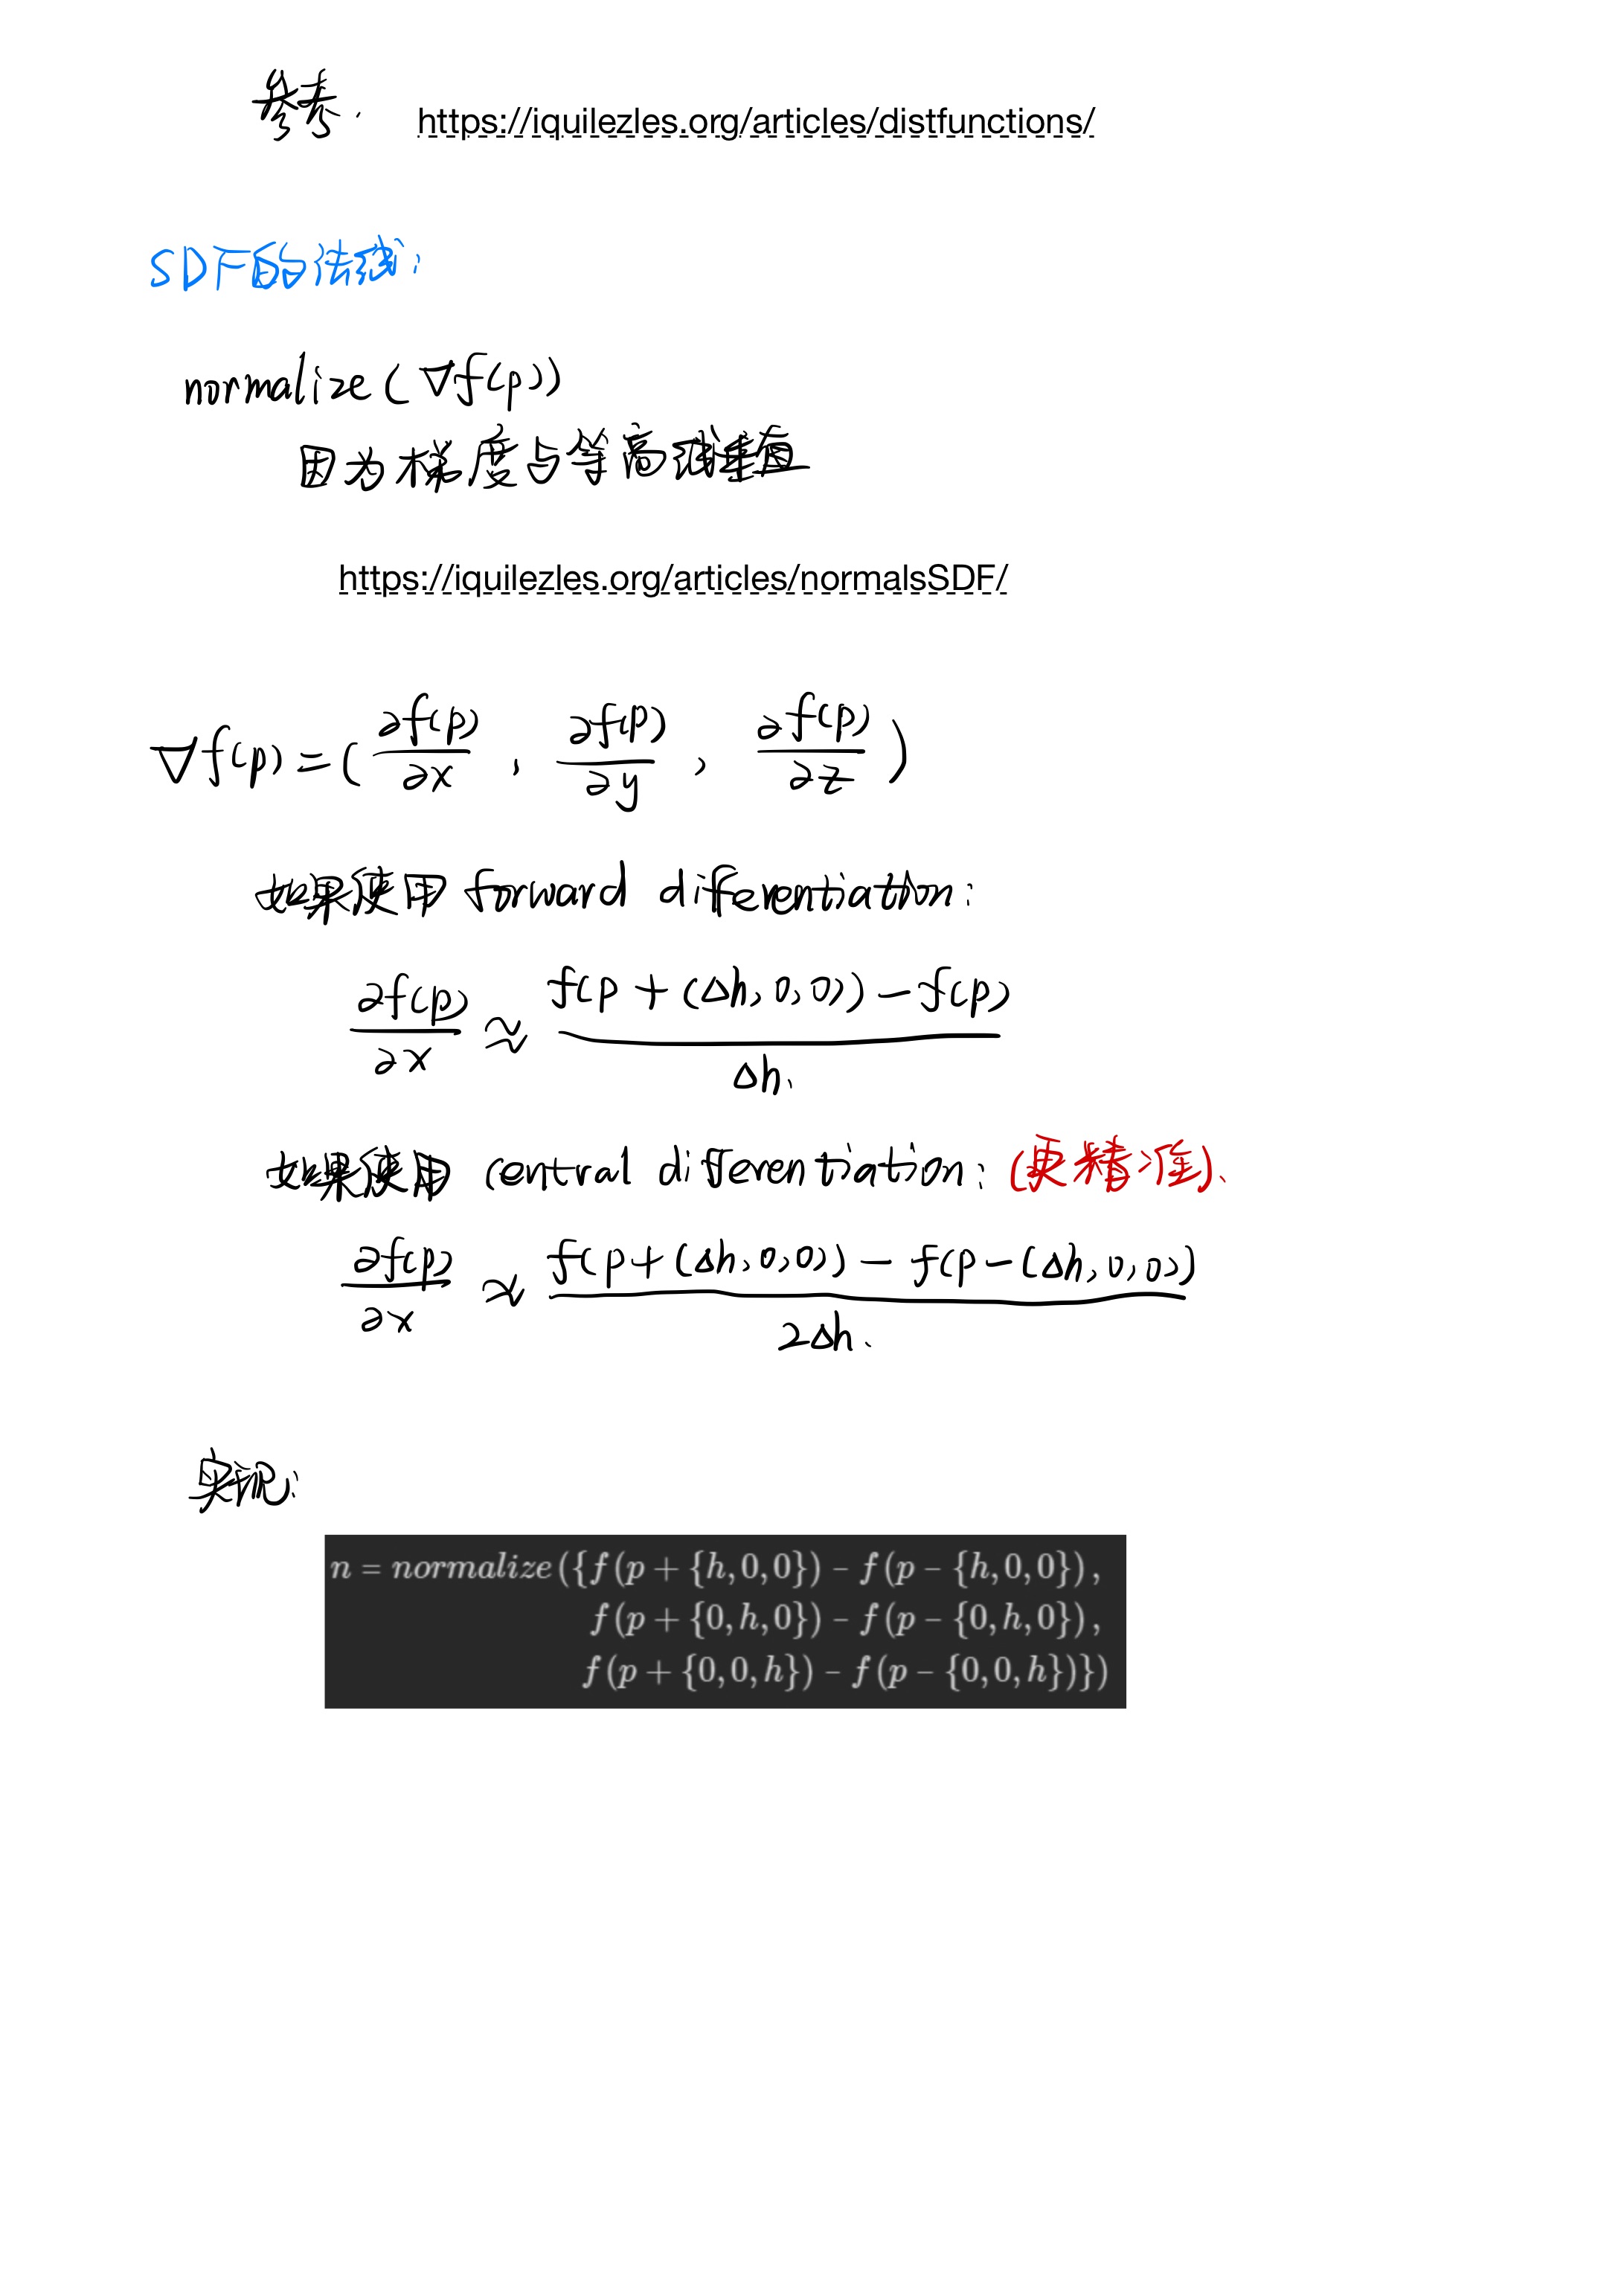 参考.
https://iquilezles.org/articles/distfunctions/
SDF的法线:
normalize(∇f(p))
因为梯度与等高线垂直
https://iquilezles.org/articles/normalsSDF/
∇f(p)=(∂f(p)/∂x, ∂f(p)/∂y, ∂f(p)/∂z)
如果使用 forward differentiation:
∂f(p)/∂x ≈ f(p+(Δh,0,0))-f(p)/Δh.
如果使用 central differentiation: (更精准).
∂f(p)/∂x ≈ f(p+(Δh,0,0))-f(p-(Δh,0,0))/2Δh.
实现:
n = normalize({f(p + {h,0,0}) - f(p - {h,0,0}),
f(p + {0,h,0}) - f(p - {0,h,0}),
f(p + {0,0,h}) - f(p - {0,0,h})})